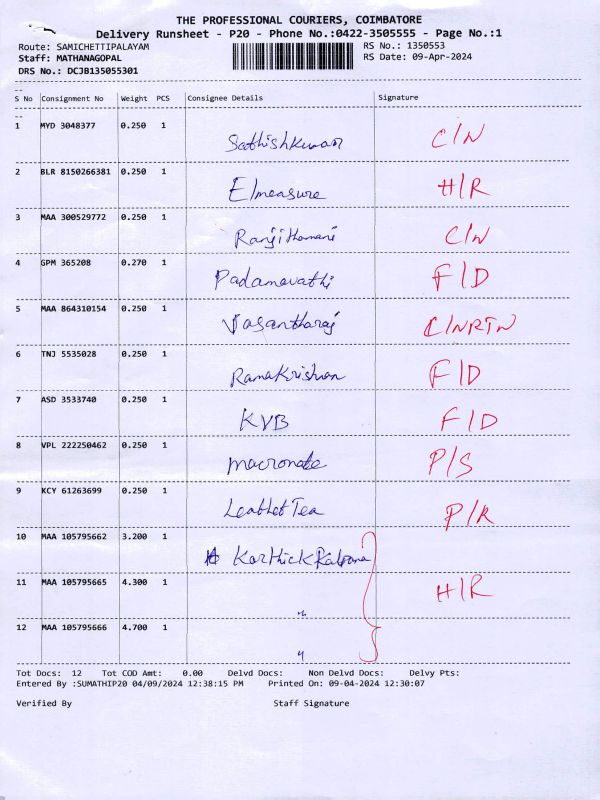 THE PROFESSIONAL COURIERS, COIMBATORE
Delivery Runsheet - P20 - Phone No.:0422-3505555 - Page No.:1
Route: SAMICHETTIPALAYAM RS No.: 1350553
Staff: MATHANAGOPAL RS Date: 09-Apr-2024
DRS No.: DCJB135055301
S No Consignment No Weight PCS Consignee Details Signature
1 MYD 3048377 0.250 1 Sathishkumar C/N
2 BLR 8150266381 0.250 1 Elmeasure H/R
3 MAA 300529772 0.250 1 Ranjithamani C/N
4 GPM 365208 0.270 1 Padamavathi F/D
5 MAA 864310154 0.250 1 Vasantharaj C/NRTN
6 TNJ 5535028 0.250 1 Ramakrishnan F/D
7 ASD 3533740 0.250 1 KVB F/D
8 VPL 222250462 0.250 1 macronate P/S
9 KCY 61263699 0.250 1 Tea P/R
10 MAA 105795662 3.200 1 Karthick
11 MAA 105795665 4.300 1 〃 H/R
12 MAA 105795666 4.700 1 〃
Tot Docs: 12 Tot COD Amt: 0.00 Delvd Docs: Non Delvd Docs: Delvy Pts:
Entered By :SUMATHIP20 04/09/2024 12:38:15 PM Printed On: 09-04-2024 12:30:07
Verified By Staff Signature